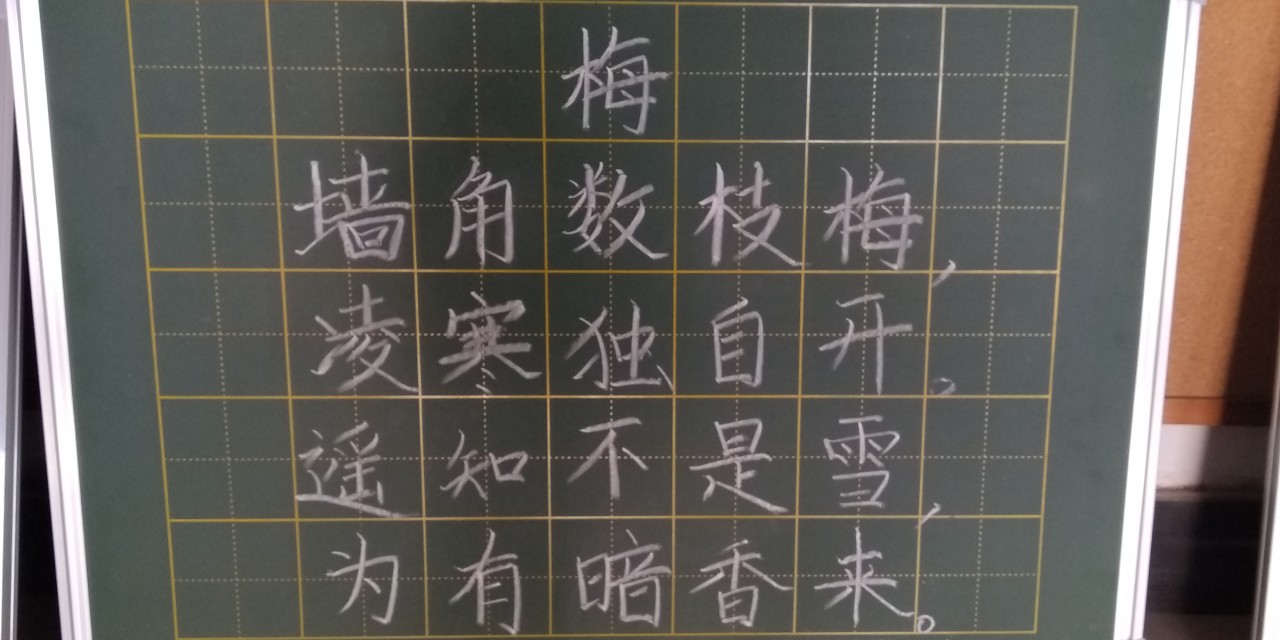 梅
墙角数枝梅，
凌寒独自开。
遥知不是雪，
为有暗香来。